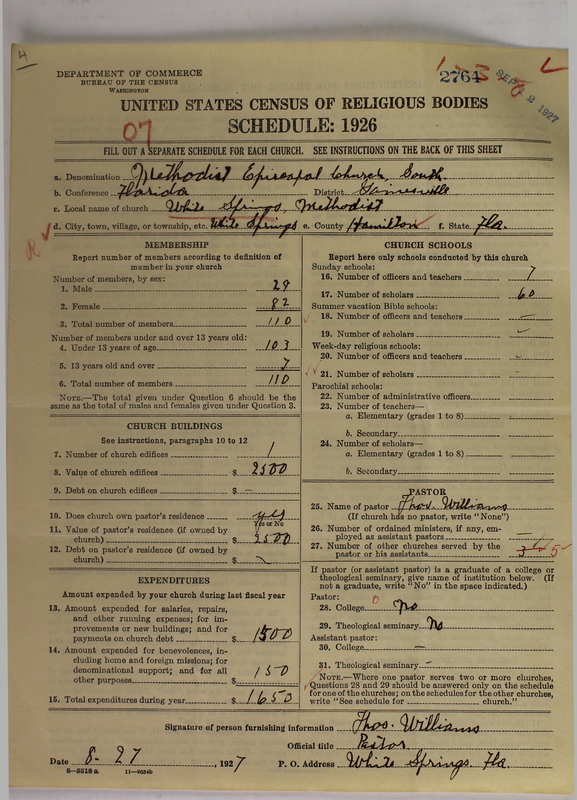 4
DEPARTMENT OF COMMERCE
BUREAU OF THE CENSUS
WASHINGTON
2764
SEP 2 1927
UNITED STATES CENSUS OF RELIGIOUS BODIES
07
SCHEDULE: 1926
FILL OUT A SEPARATE SCHEDULE FOR EACH CHURCH. SEE INSTRUCTIONS ON THE BACK OF THIS SHEET
a. Denomination Methodist Episcopal Church, South
b. Conference Florida District Gainesville
c. Local name of church White Springs, Methodist
d. City, town, village, or township, etc. White Springs e. County Hamilton f. State Fla.
R
MEMBERSHIP
Report number of members according to definition of
member in your church
Number of members, by sex:
1. Male 28
2. Female 82
3. Total number of members 110
Number of members under and over 13 years old:
4. Under 13 years of age 103
5. 13 years old and over 7
6. Total number of members 110
NOTE.—The total given under Question 6 should be the
same as the total of males and females given under Question 3.
CHURCH BUILDINGS
See instructions, paragraphs 10 to 12
7. Number of church edifices 1
8. Value of church edifices $ 2500
9. Debt on church edifices $ —
10. Does church own pastor's residence yes
Yes or No
11. Value of pastor's residence (if owned by
church) $ 2500
12. Debt on pastor's residence (if owned by
church) $
EXPENDITURES
Amount expended by your church during last fiscal year
13. Amount expended for salaries, repairs,
and other running expenses; for im-
provements or new buildings; and for
payments on church debt $ 1500
14. Amount expended for benevolences, in-
cluding home and foreign missions; for
denominational support; and for all
other purposes $ 150
15. Total expenditures during year $ 1650
CHURCH SCHOOLS
Report here only schools conducted by this church
Sunday schools:
16. Number of officers and teachers 7
17. Number of scholars 60
Summer vacation Bible schools:
18. Number of officers and teachers —
19. Number of scholars —
Week-day religious schools:
20. Number of officers and teachers -
21. Number of scholars -
Parochial schools:
22. Number of administrative officers
23. Number of teachers—
a. Elementary (grades 1 to 8)
b. Secondary
24. Number of scholars—
a. Elementary (grades 1 to 8)
b. Secondary
PASTOR
25. Name of pastor Thos. Williams
(If church has no pastor, write "None")
26. Number of ordained ministers, if any, em-
ployed as assistant pastors —
27. Number of other churches served by the
pastor or his assistants 3 5
If pastor (or assistant pastor) is a graduate of a college or
theological seminary, give name of institution below. (If
not a graduate, write "No" in the space indicated.)
Pastor:
28. College 0 No
29. Theological seminary No
Assistant pastor:
30. College —
31. Theological seminary -
NOTE.—Where one pastor serves two or more churches,
Questions 28 and 29 should be answered only on the schedule
for one of the churches; on the schedules for the other churches,
write "See schedule for church."
Signature of person furnishing information Thos. Williams
Official title Pastor
Date 8-27, 1927 P. O. Address White Springs, Fla.
8—5818 a 11—9054b